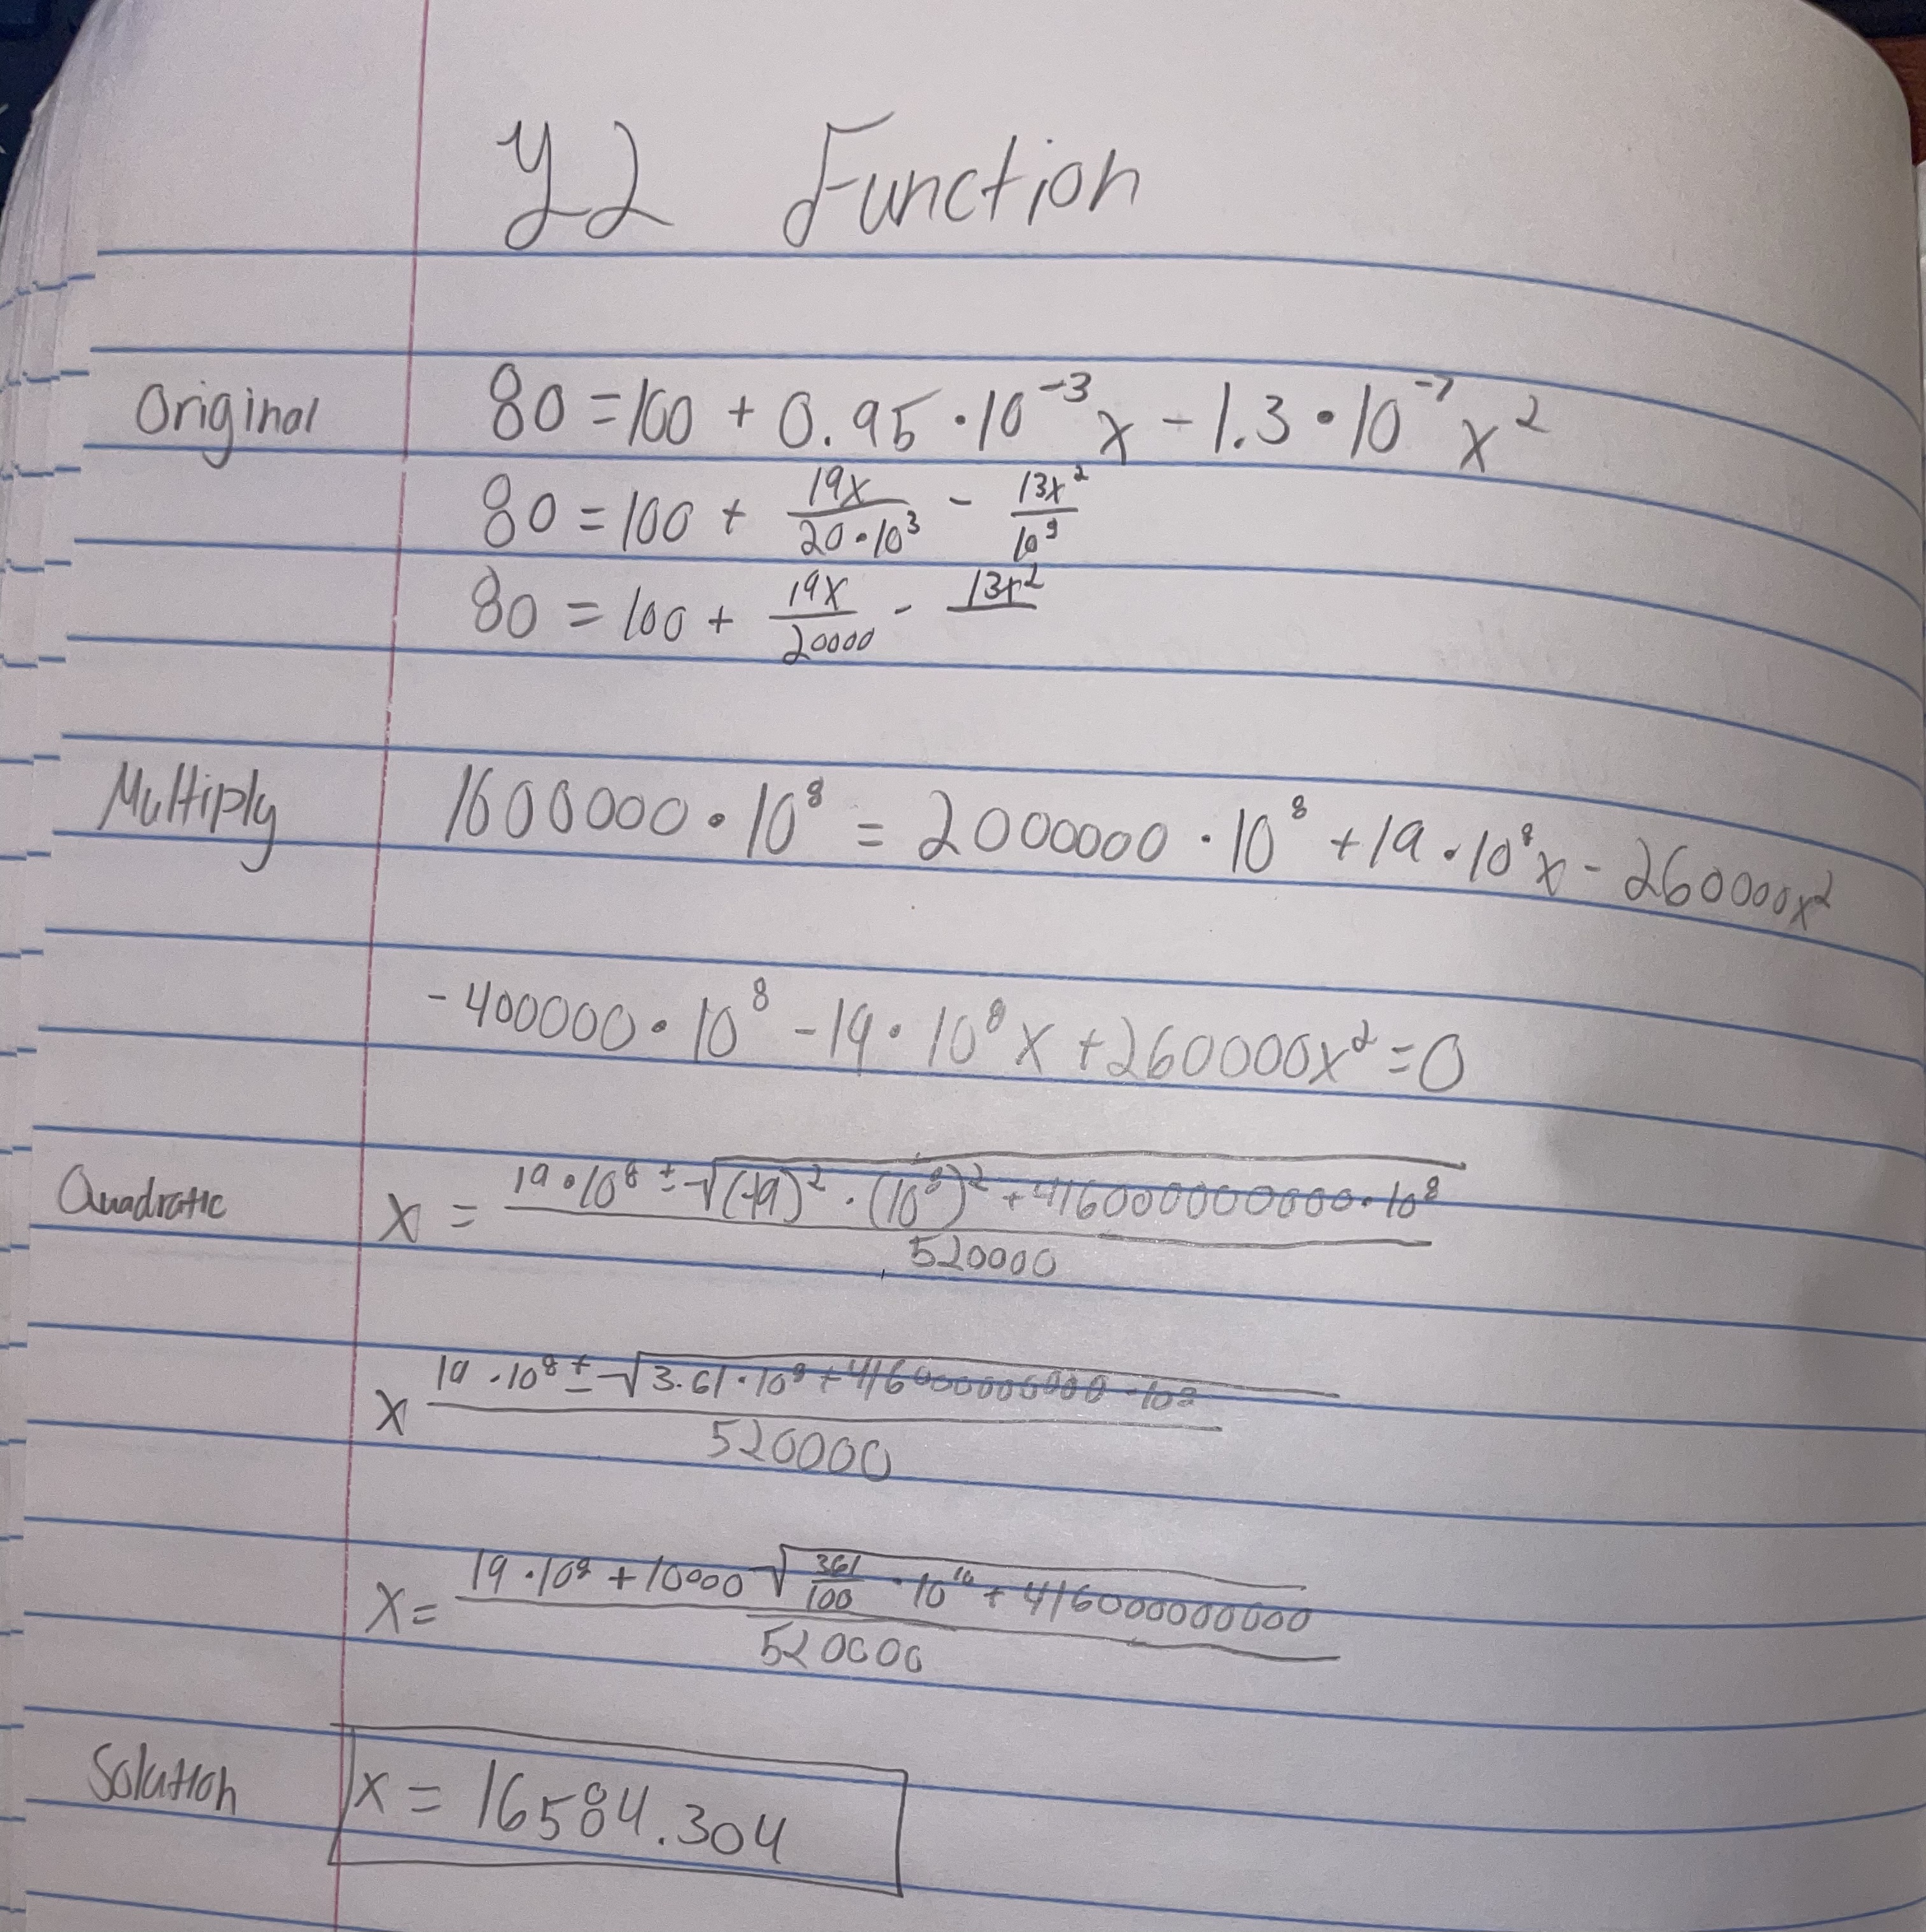 y2 Function
Original 80 = 100 + 0.95 · 10^-3 x - 1.3 · 10^-7 x^2
80 = 100 + 19x/(20·10^3) - 13x^2/10^9
80 = 100 + 19x/20000 - 13x^2/
Multiply 1600000 · 10^8 = 2000000 · 10^8 + 19 · 10^8 x - 260000x^2
-400000 · 10^8 - 19 · 10^8 x + 260000x^2 = 0
Quadratic x = (19·10^8 ± √((-19)^2 · (10^8)^2 + 416000000000 · 10^8))/520000
x (19 · 10^8 ± √(3.61 · 10^9 + 416000000000 · 10^8))/520000
x = (19 · 10^8 + 10000√(361/100 · 10^10 + 416000000000))/520000
Solution x = 16584.304